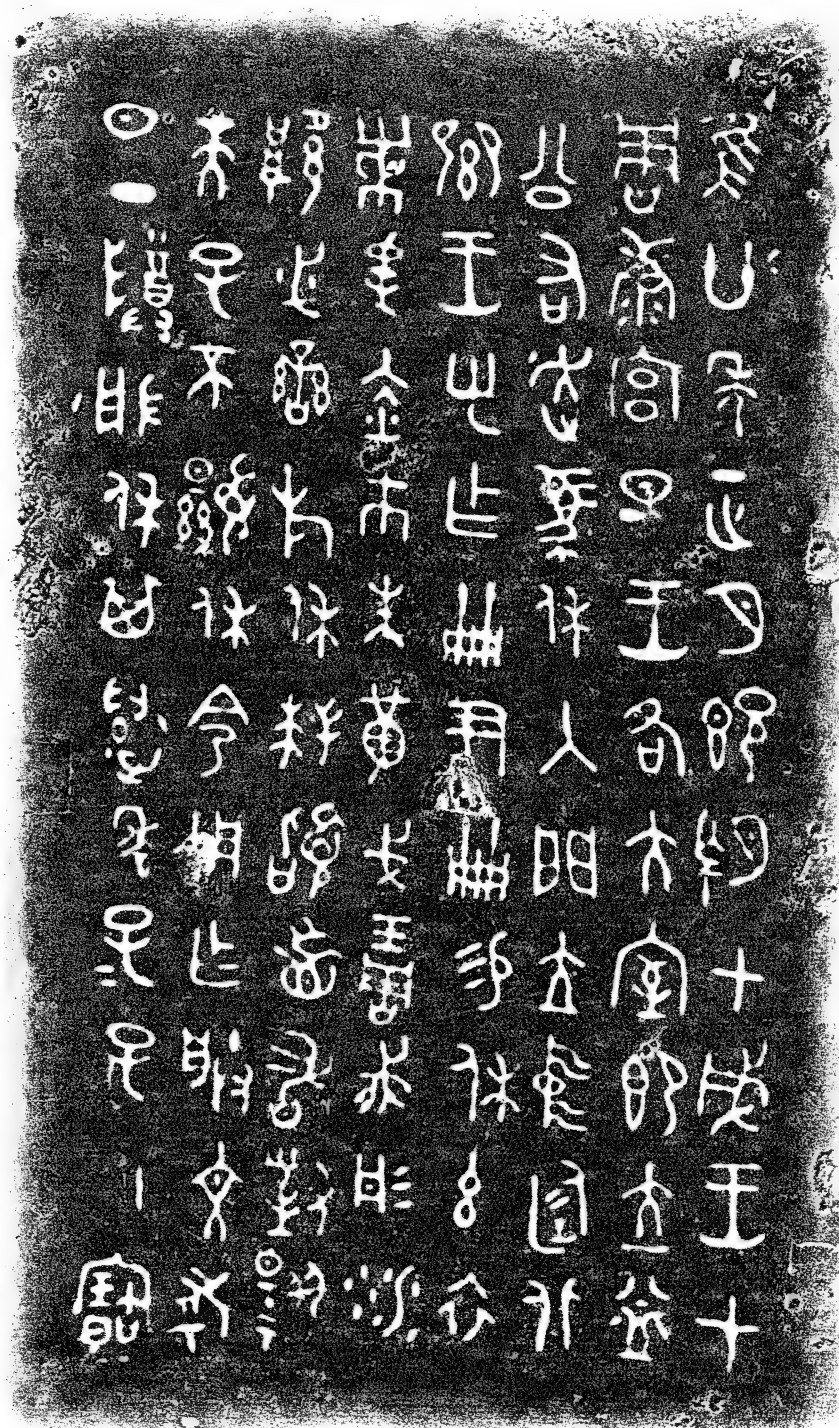 隹廿年正月既望甲戌王才
周康宮旦王各大室即立益
公右走馬休入門立中廷北
卿王乎乍冊尹冊易休玄衣
黹屯赤市朱黃戈琱胾彤沙
厚必䜌㫃休拜𩒨首敢對揚
天子不顯休令用乍朕文考
日丁尊般休其萬年子子孫永寶